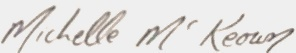 Michelle McKeown